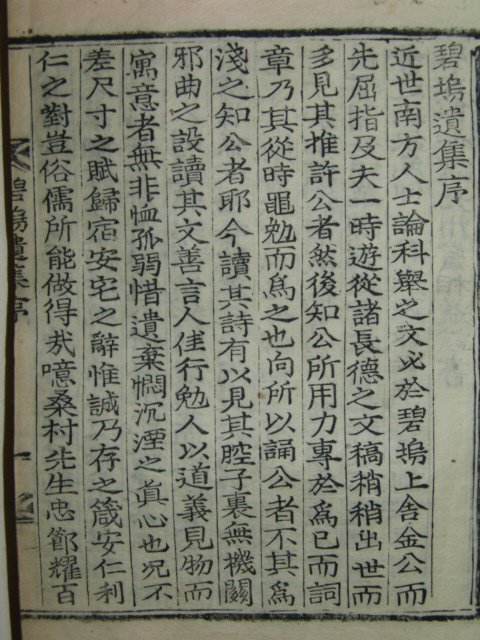 碧塢遺集序
近世南方人士論科擧之文必於碧塢上舍金公而
先屈指及夫一時遊從諸長德之文稿稍稍出世而
多見其推許公者然後知公所用力專於爲已而詞
章乃其從時黽勉而爲之也向所以誦公者不其爲
淺之知公者耶今讀其詩有以見其腔子裏無機關
邪曲之設讀其文善言人佳行勉人以道義見物而
寓意者無非恤孤弱惜遺棄憫沉湮之眞心也况不
差尺寸之賦歸宿安宅之辭惟誠乃存之箴安仁利
仁之對豈俗儒所能做得㦲噫桑村先生忠節耀百
碧塢遺集序
一